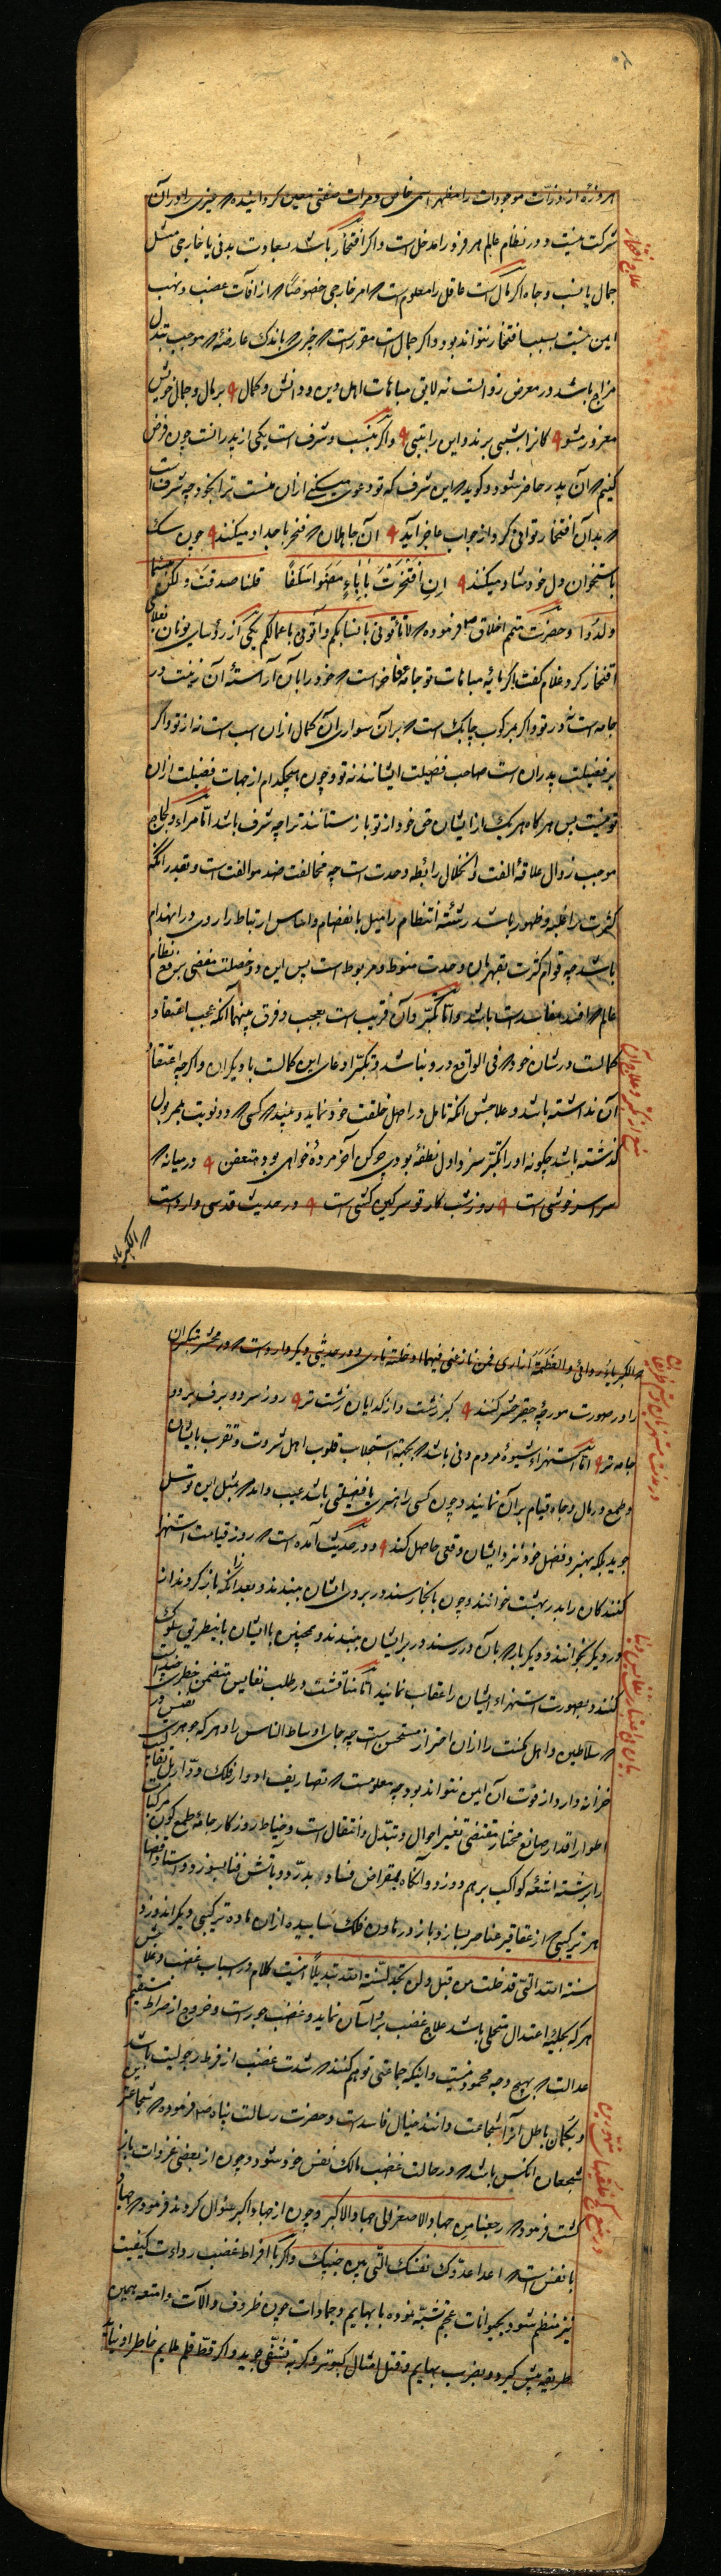 هر ذره از ذرات موجودات را مظهر اسمی خاص و مرات صفتی معین گردانیده که غیری را در آن
شرکت نیست و در نظام عالم هر فرد را مدخل است و اگر افتخار باشد بسعادت بدنی یا خارجی مثل
علاج افتخار
جمال یا نسب و جاه اگر مال است عاقل را معلوم است که امر خارجی خصوصا که از آفات غضب و نهب
ایمن نیست بسبب افتخار نتواند بود و اگر جمال است مقرر است که چیزی که باندک عارضه که موجب تبدل
مزاج باشد در معرض زوالست نه لایق مباهات اهل دین و دانش و کمال بر مال و جمال خویش
مغرور مشو کانرا بشبی برند و این را بتبی و اگر بنسب و شرف است یکی از پدرانست چون فرض
کنیم که آن پدر حاضر شود و گوید که این شرف که تو دعوی میکنی از ان منست ترا بخود چه شرف است
که بدان افتخار توانی کرد از جواب عاجز آید آن جاهلان که فخر باجداد میکنند چون سک
باستخوان دل خود شاد میکنند ان افتخرت بآباء مضوا سلفا قلنا صدقت ولکن بئسما
ولدوا و حضرت متمم اخلاق صلعم فرموده که لا تأتونی بانسابکم و أتونی باعمالکم یکی از رؤسای یونان بغلامی
افتخار کرد غلام گفت اگر مایه مباهات تو جامه فاخر است که خود را بآن آراسته آن زینت در
جامه است نه در تو و اگر مرکوب چابک است که بران سواری آن کمال از ان اسب است نه از تو و اگر
بر فضیلت پدران است صاحب فضیلت ایشانند نه تو و چون هیچکدام از جهات فضیلت از ان
تو نیست پس هرگاه هر یک از ایشان حق خود از تو باز ستانند ترا چه شرف باشد اما مراء و لجاج
موجب زوال علاقه الفت و انحلال رابطه وحدت است چه مخالفت ضد موالفت است و بقدر آنکه
کثرت را غلبه و ظهور باشد رشته انتظام را میل بانفصام و اساس ارتباط را روی در انهدام
باشد چه قوام کثرت بقهرمان وحدت منوط و مربوط است پس این دو خصلت مفضی برفع نظام
عالم که افسد مفاسد است باشد و اما تکبر و آن قریب است بعجب و فرق بینهما آنکه عجب اعتقاد
کمالست در شان خود که فی الواقع در و نباشد و تکبر ادعای این کمالست با دیگران و اگر چه اعتقاد
منع از تکبر و علاج آن
آن نداشته باشد و علاجش آنکه تامل در اصل خلقت خود نماید و ببیند که کسی که دو نوبت بممر بول
گذشته باشد چگونه او را تکبر سزد اول نطفه بودی چو کن آخر مرده خواهی بود متعفن و در میانه که
سراسر خوشی است روز و شب کار تو سرکین کشی است و در حدیث قدسی وارد است
که الکبریاء
که الکبریاء ردائی و العظمة ازاری فمن نازعنی فیهما ادخلته ناری و در حدیثی دیگر وارد است که در محشر متکبران
را در صورت مورچه حقیر حشر کنند کبر زشت و از گدایان زشت تر روز سرد و برف و
جامه تر اما استهزاء شیوه مردم دنی باشد که بجهة استجلاب قلوب اهل ثروت و تقرب بایشان
و طمع در مال و جاه قیام بر آن نمایند و چون کسی را هنری یا فضیلتی باشد عیب داند که بمثل این توسل
جوید بلکه بهنر و فضل خود نزد ایشان وقعی حاصل کند و در حدیث آمده است که روز قیامت استهزا
کنندگان را بدر بهشت خوانند و چون بانجا رسند در بروی ایشان ببندند و بعد از آنکه باز گردند از
در دیگر بخوانند و دیگر بار که بآن در رسند در بر ایشان ببندند و همچنین با ایشان باینطریق سلوک
کنند و بصورت استهزاء ایشان را عقاب نمایند اما منافست و در طلب نفایس متضمن خطری
که سلاطین و اهل مکنت را از ان احتراز مستحسن است چه جای اوساط الناس را و هر که جوهری نفیس در
خزانه دارد از فوت آن ایمن نتواند بود چه معلومست که تصاریف ادوار فلک دوار
اطوار اقدار صانع مختار مقتضی تغیر احوال و تبدل و انتقال است و خیاط روزگار جامه طمع کون مرکبات
را برشته اشعه کواکب بر هم دوزد و آنگاه بمقراض فساد بدرد و بآتش فنا بسوزد و
هر ترکیبی از عقاقیر عناصر بسازد و باز در هاون فلک ساییده از ان ماده ترکیبی دیگر اندوزد
سنة الله التی قد خلت من قبل و لن تجد لسنة الله تبدیلا اینست کلام در اسباب غضب و علاجش
هر که بحلیه اعتدال متحلی باشد علاج غضب بر و آسان نماید و غضب جور است و خروج از صراط مستقیم
عدالت که بهیچ وجه محمود نیست و اینکه جماعتی توهم کنند که شدت غضب از فرط رجولیت باشد
و بگمان باطل آنرا شجاعت دانند خیال فاسد است و حضرت رسالت پناه صلعم فرموده که شجاعترین
شجعان آنکس باشد که در حالت غضب مالک نفس خود شود و چون از بعضی غزوات باز
گشت فرموده که رجعنا من جهاد الاصغر الی جهاد الاکبر و چون از جهاد اکبر سئوال کردند فرمود که جهاد
با نفس است که اعدا عدوک نفسک التی بین جنبیک و اگر با افراط غضب رداءت کیفیت
نیز منظم شود بحیوانات عجم تشبه نموده با بهایم و جمادات چون ظروف و آلات و امتعه همین
طریقه پیش گیرد و بضرب بهایم و قتل امثال کبوتر و گربه تشفی جوید و اگر قط قلم ملایم خاطر او نیاید